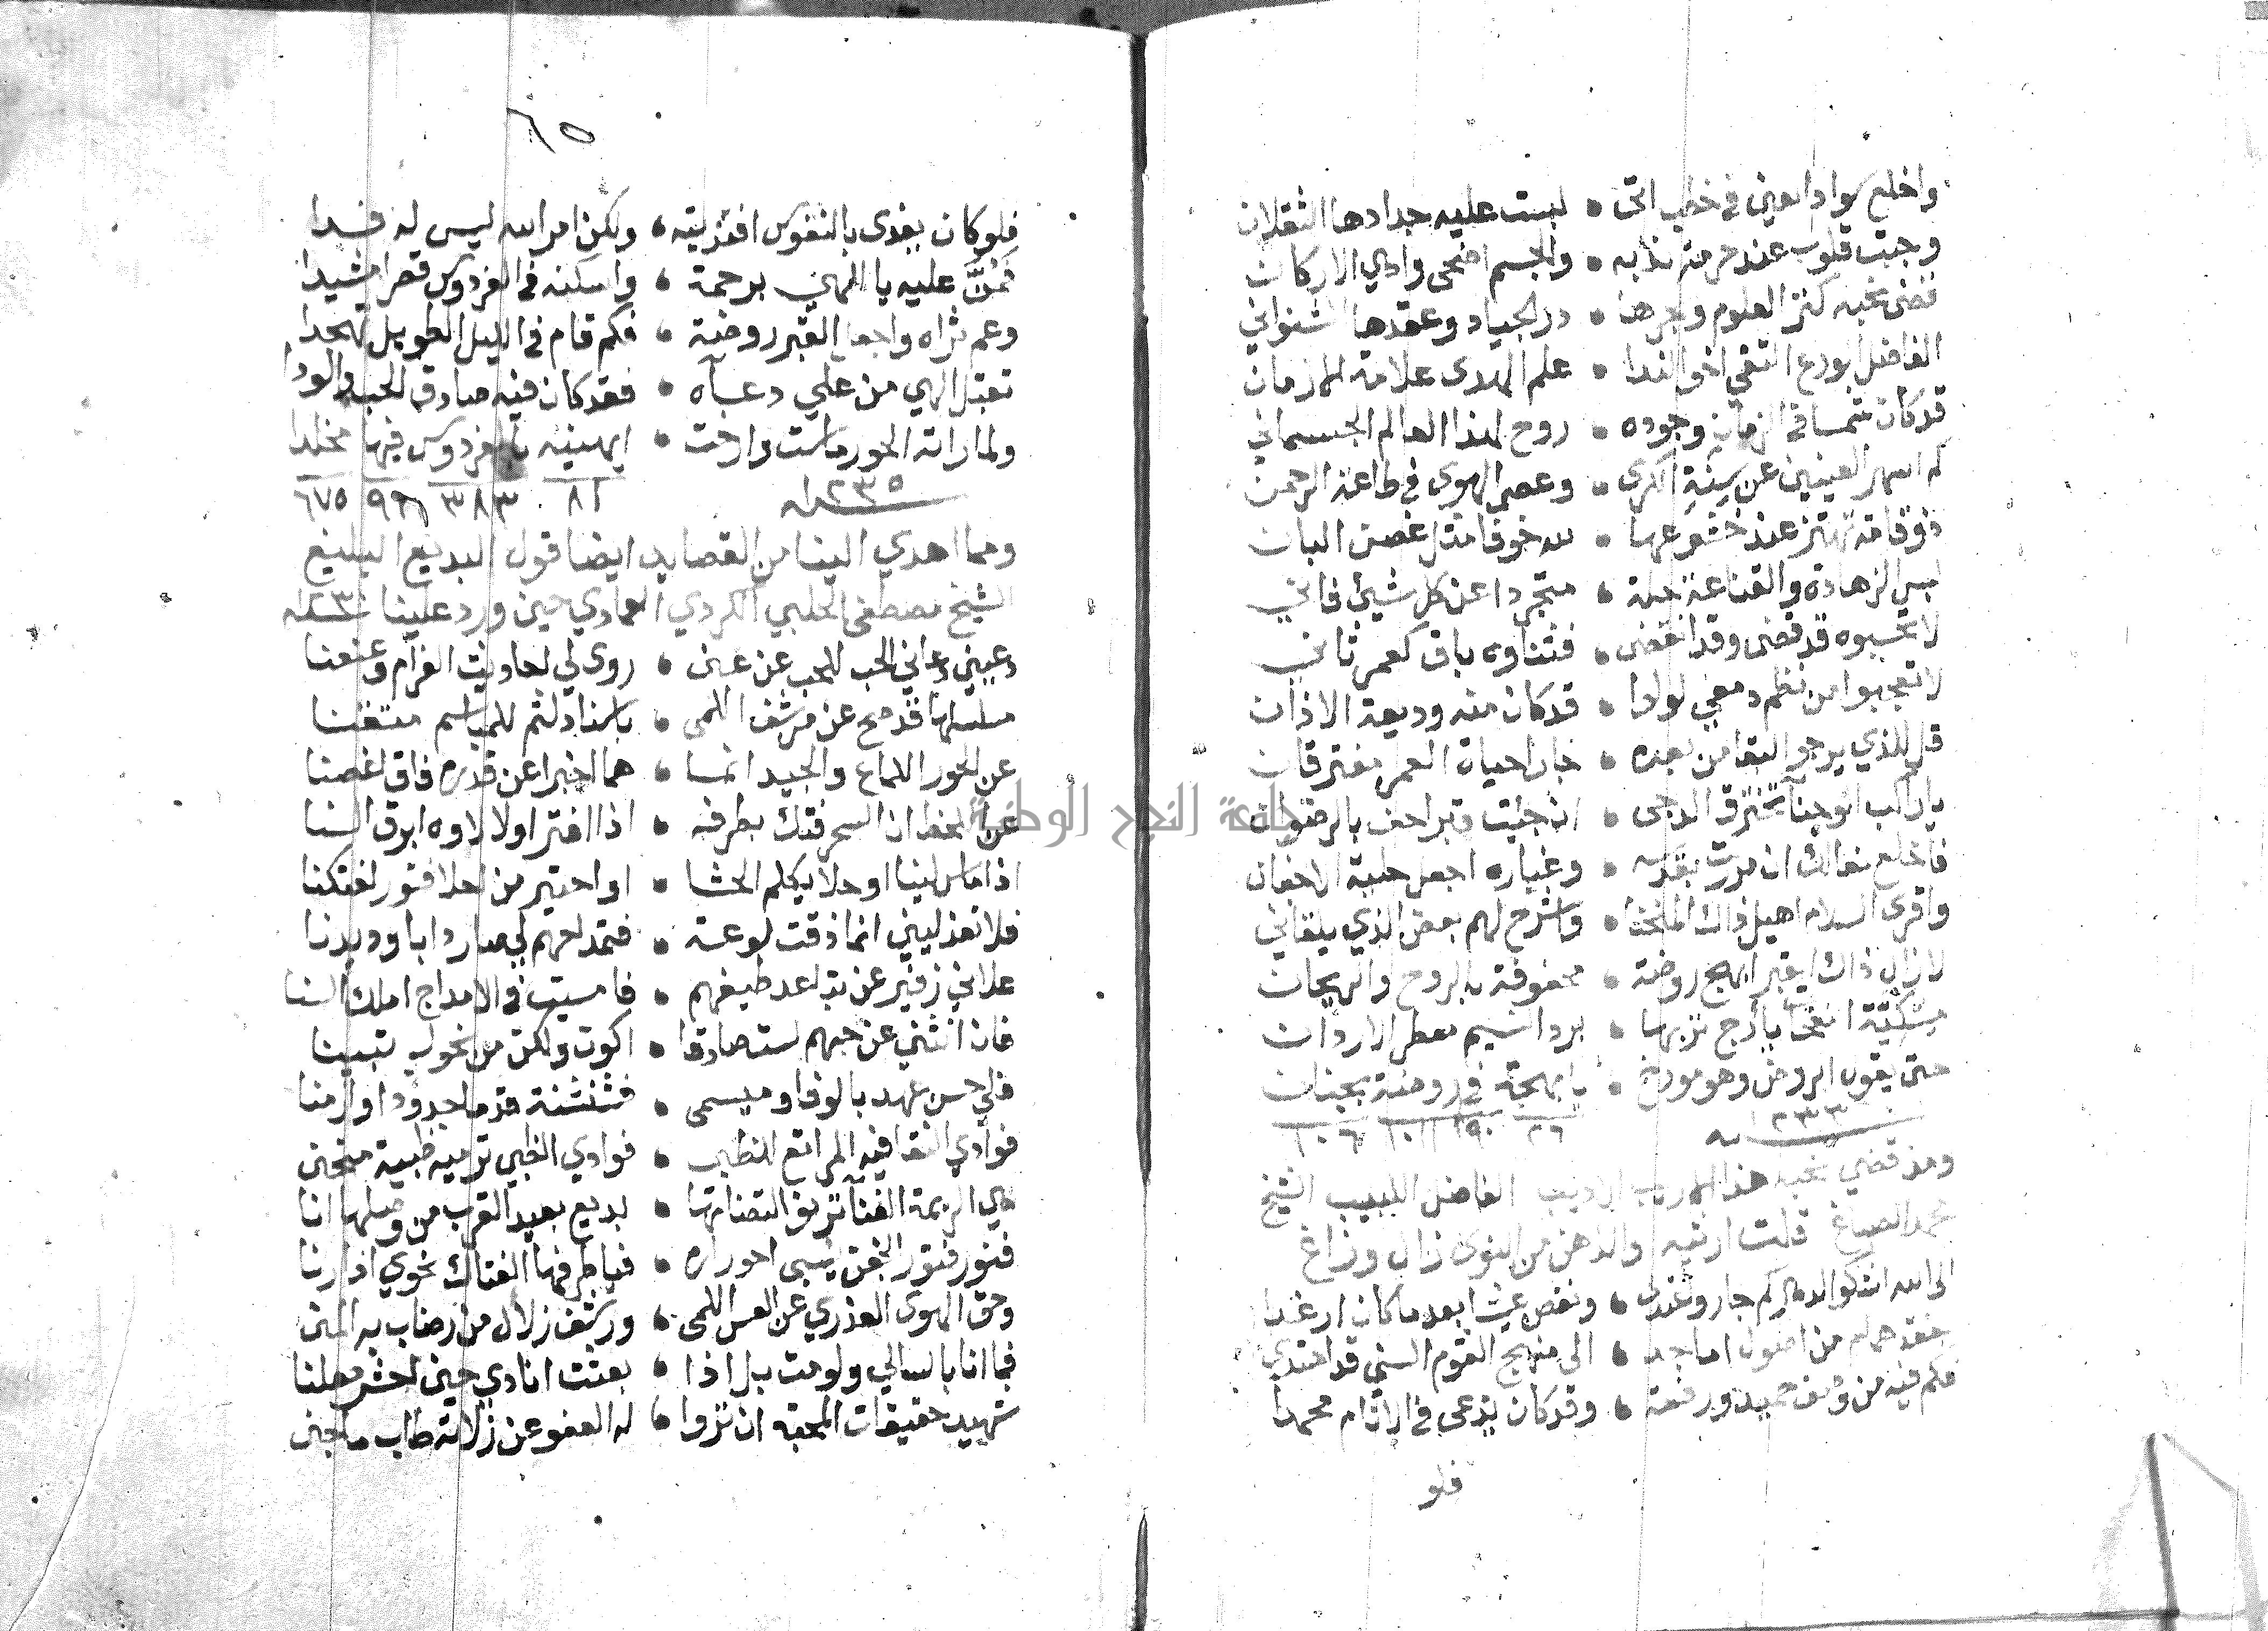 واخلع سواد العين في خطب اتى • لبست عليه حدادها الثقلان
وجبت قلوب عند حرمة ندبه • والجسم اضحى واهي الاركان
قضى نحبه كنز العلوم وبحرها • در الجياد وعقدها الشنواني
الفاضل الورع التقي اخو الندا • علم الهدى علامة الازمان
قد كان شمسا في الزمان وجوده • روح لهذا العالم الجسماني
كم اسهر العينين عن سِنَةِ الكرى • وعصى الهوى في طاعة الرحمن
ذو قامة تهتز عند خشوعها • لله خوفا مثل غصن البان
لبس الزهادة والقناعة حلة • متجردا عن كل شيئ فاني
لا تحسبوه قد قضى وقد انقضى • فثناوه باق كعمر ثاني
لا تعجبوا من نظم دمعي لولوا • قد كان منه وديعة الاذان
قل للذي يرجو البقا من بعده • جار احياة العمر مفترقان
يا راكب الوجنآ تخترق الدجى • ان جئيت قبرا حف بالرضوان
فاخلع نعالك ان مررت بقدسه • وغباره اجعل حلية الاجفان
واقرى السلام اهيل ذاك المنحنا • واشرح لهم بعض الذي يلقاني
لا زال ذاك القبر ابهج روضة • محفوفة بالروح والريحان
مسكيّة النفحات بأرج تربها • برد النسيم معطر الاردان
حتى يقول الروض وهو مورخ • يا بهجة في روضة بجنان
١١٣٣ سنه ٢٦ ٩٠ ١٠١١ ١٠٦
ومذ قضي نحبه هذا الاديب الفاضل اللبيب الشيخ
محمد الصباغ قلت ارثيه والذهن من النوى زال وزاغ
الى الله اشكو الدهر كم جار واعتدى • ونغص عيشا بعد ما كان ارغدا
بفقد همام من اصول اماجد • الى منهج القوم السني قد اهتدي
فكم فيه من وصف حميد ورفعة • وقد كان يدعى في الانام محمدا
فلو
٦٥
فلو كان يفدى بالنفوس افتديته • ولكن امر الله ليس له فدا
فمُنَّ عليه يا الهي برحمة • واسكنه في الفردوس قصرا مشيدا
وعم ثراه واجعل القبر روضة • فكم قام في الليل الطويل تهجدا
تقبل الهي من علي دعآه • فقد كان فيه صادق الحب والودا
ولما راته الحور ماست وارخت • ايهنيه بالفردوس فيها مخلدا
١٢٣٥ سنه ٨١ ٣٨٣ ٩٦ ٦٧٥
ومما اهدي الينا من القصايد ايضا قول البديع البليغ
الشيخ مصطفى الحلبي الكردي العمادي حين ورد علينا
دعيني دعاني الحب للحب عن عنى • روى لي احاديث الغرام وعنعنا
مسلسلها قد صح عن مرشف اللمى • باسناد لثم للمباسم متقنا
عن الحور اللماع والجيد انما • هما اخبرا عن قده فاق اغصنا
عن اللحظ ان السحر فتك بطرفه • اذا افتر اولا لاوه ابرق السنا
اذا ماس لينا او حلا يكلم الحشا • او احتير من احلا فتور لفتكنا
فلا تعذليني انما ذقت لوعة • فتمداحهم لي صار دابا وديدنا
علاني زفير عن تباعد طيفهم • فامسيت في الامداج املك السنا
فان انثني عن حبهم لست صادقا • اكون ولكن من نحول تبينا
فلي حسن عهد بالوفا وميسمى • فشنشنة قدما جدودا وازمنا
فوادي النقا فيه المراتع للظبى • فوادي الظبي ترميه ظبية منحنى
هي الريمة الغنآ تريق التضامها • بديع بعيد القرب من وصلها انا
فنور فتور الجفن يسبى احوراره • فيا طرفها الفتاك نحوي اذا رنا
وحق الهوى العذري عن العس اللمى • ورشف زلال من رضاب به المنى
فما انا بالسالي ولو مت بل اذا • بعثت انادي حين احشر معلنا
شهيد حقيقات المحبة ان تزوا • له العفو عن زلاته طاب ما جنى
جامعة النجاح الوطنية